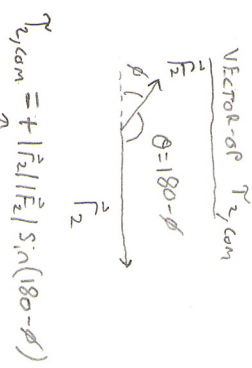 VECTOR-OP τ₂,com
F⃗₂
φ
θ=180-φ
r⃗₂
τ₂,com = + |r⃗₂| |F⃗₂| Sin(180-φ)